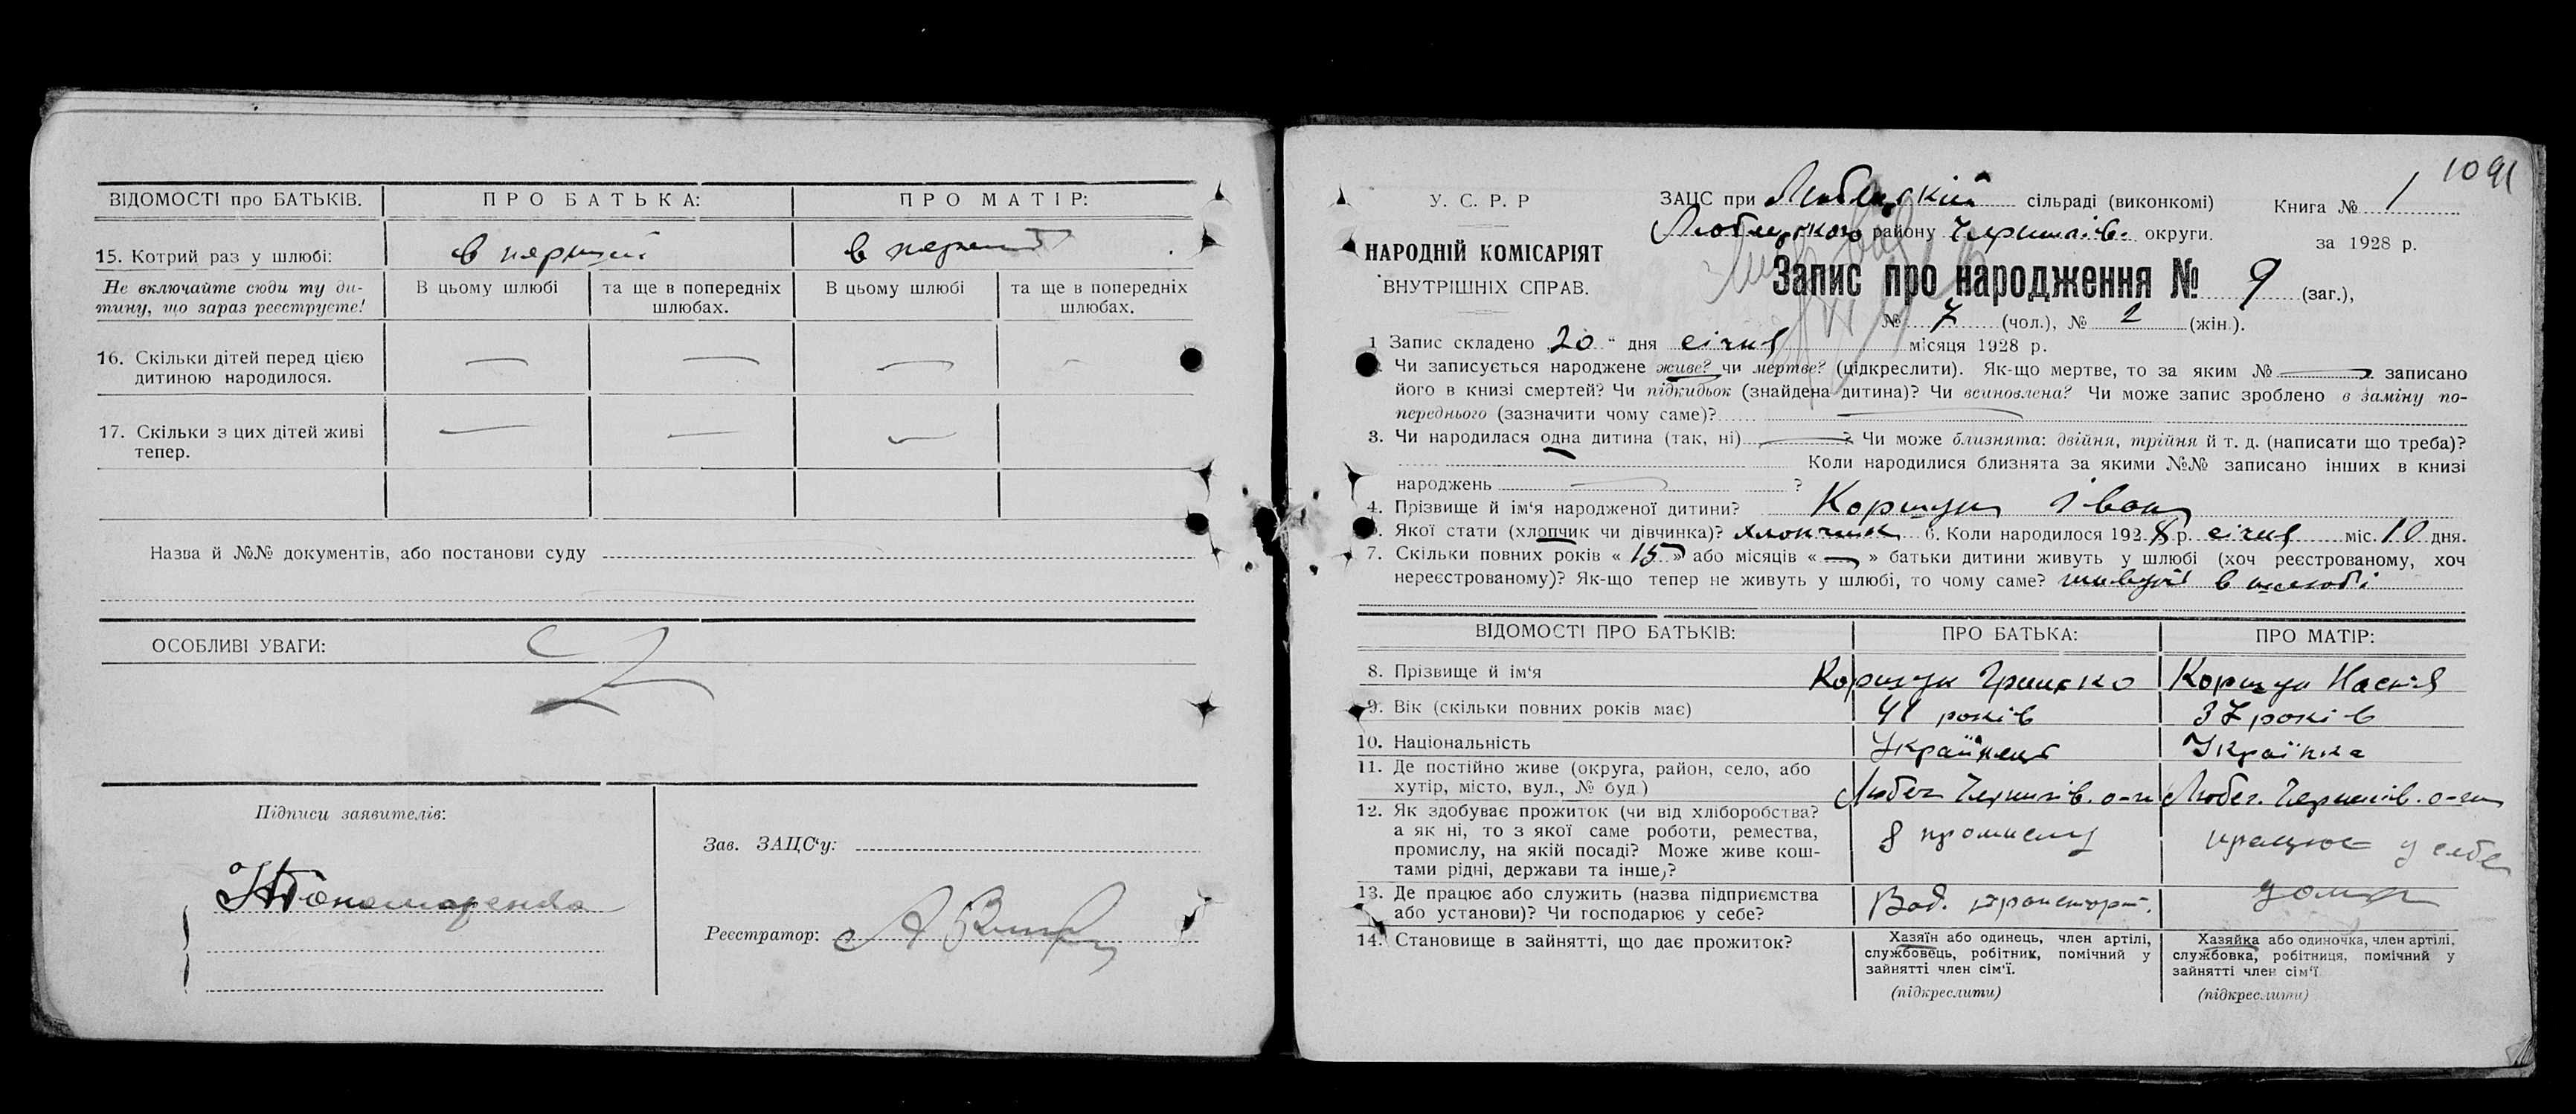 ВІДОМОСТІ про БАТЬКІВ. ПРО БАТЬКА: ПРО МАТІР:
15. Котрий раз у шлюбі: в перший в перший
Не включайте сюди ту ди-
тину, що зараз реєструєте!
В цьому шлюбі
та ще в попередніх
шлюбах.
В цьому шлюбі
та ще в попередніх
шлюбах.
16. Скільки дітей перед цією
дитиною народилося. — — — —
17. Скільки з цих дітей живі
тепер. — — —
Назва й №№ документів, або постанови суду
ОСОБЛИВІ УВАГИ:
Підписи заявителів:
Зав. ЗАЦС'у:
Реєстратор:
1091
У. С. Р. Р
НАРОДНІЙ КОМІСАРІЯТ
ВНУТРІШНІХ СПРАВ.
ЗАЦС при Любецькій сільраді (виконкомі)
Любецького району Чернигів. округи.
Книга № 1
за 1928 р.
Запис про народження № 9 (заг.),
№ 7 (чол.), № 2 (жін.).
1 Запис складено 20 " дня січня місяця 1928 р.
Чи записується народжене живе? чи мертве? (підкреслити). Як-що мертве, то за яким № — записано
його в книзі смертей? Чи підкидьок (знайдена дитина)? Чи всиновлена? Чи може запис зроблено в заміну по-
переднього (зазначити чому саме)? —
3. Чи народилася одна дитина (так, ні) — ? Чи може близнята: двійня, трійня й т. д. (написати що треба)?
Коли народилися близнята за якими №№ записано інших в книзі
народжень — ?
4. Прізвище й ім'я народженої дитини? Коршун Іван
Якої стати (хлопчик чи дівчинка)? хлопчик 6. Коли народилося 1928 р. січня міс. 10 дня.
7. Скільки повних років « 15 » або місяців « — » батьки дитини живуть у шлюбі (хоч реєстрованому, хоч
нереєстрованому)? Як-що тепер не живуть у шлюбі, то чому саме? живуть в шлюбі
ВІДОМОСТІ ПРО БАТЬКІВ: ПРО БАТЬКА: ПРО МАТІР:
8. Прізвище й ім'я Коршун Грицко Коршун Настя
9. Вік (скільки повних років має) 41 років 37 років
10. Національність Українець Українка
11. Де постійно живе (округа, район, село, або
хутір, місто, вул., № буд.) Любеч Чернигів. о-ги Любеч. Чернигів. о-ги
12. Як здобуває прожиток (чи від хліборобства?
а як ні, то з якої саме роботи, ремества,
промислу, на якій посаді? Може живе кош-
тами рідні, держави та інше,? з промислу працює у себе
дома
13. Де працює або служить (назва підприємства
або установи)? Чи господарює у себе? Вод. транспорт.
14. Становище в зайнятті, що дає прожиток?
Хазяїн або одинець, член артілі,
службовець, робітник, помічний у
зайнятті член сім'ї.
(підкреслити)
Хазяйка або одиночка, член артілі,
службовка, робітниця, помічний у
зайнятті член сім'ї
(підкреслити)